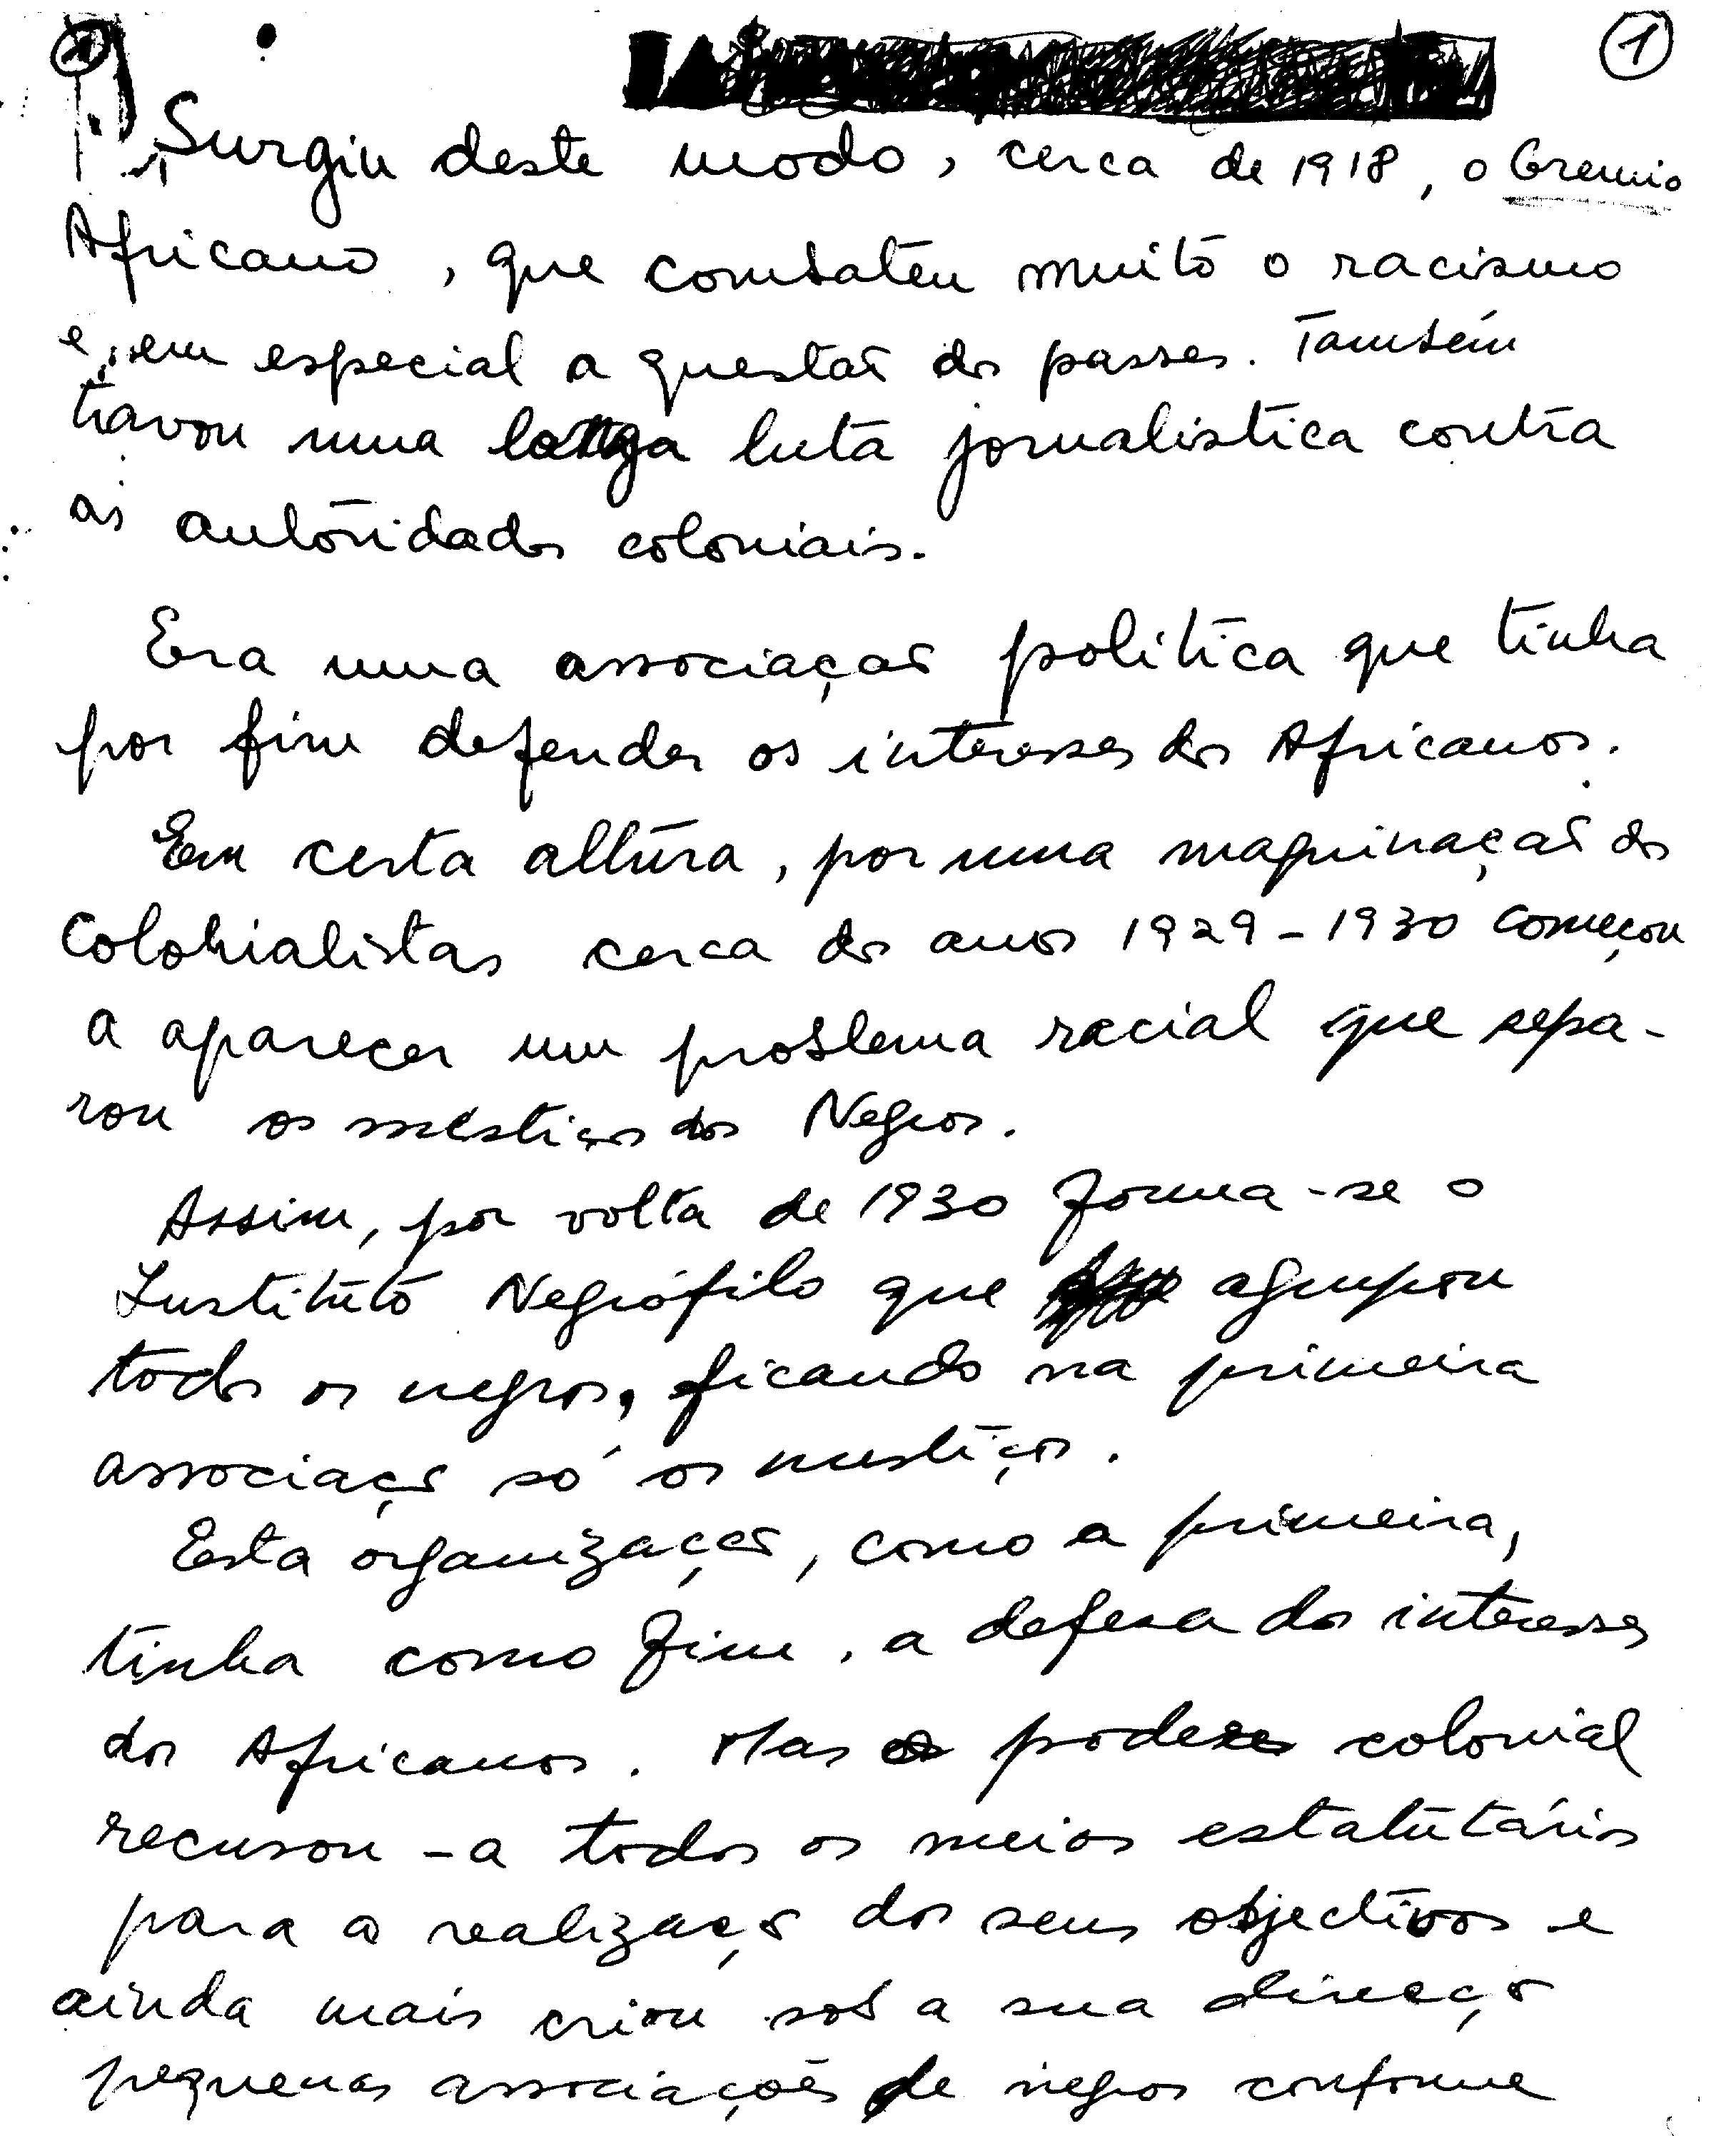 1
Surgiu deste modo, cerca de 1918, o Gremio
Africano, que combateu muito o racismo
e, em especial a questão dos passes. Também
travou uma longa luta jornalística contra
as autoridades coloniais.
Era uma associação política que tinha
por fim defender os interesses dos Africanos.
Em certa altura, por uma maquinação dos
Colonialistas cerca dos anos 1929-1930 começou
a aparecer um problema racial que sepa-
rou os mestiços dos Negros.
Assim, por volta de 1930 forma-se o
Instituto Negrófilo que agrupou
todos os negros, ficando na primeira
associação só os mestiços.
Esta organização, como a primeira,
tinha como fim, a defesa dos interesses
dos Africanos. Mas o poder colonial
recusou-a todos os meios estatutários
para a realização dos seus objectivos e
ainda mais criou sob a sua direcção
pequenas associações de negros conforme